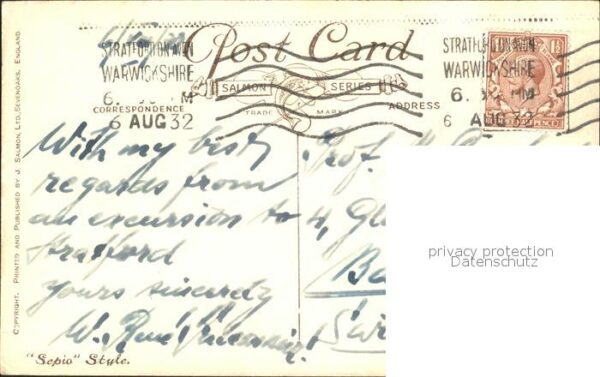 Post Card
STRATFORD-ON-AVON
WARWICKSHIRE
6. M
6 AUG 32
STRATFORD-ON-AVON
WARWICKSHIRE
6. PM
6 AUG 32
SALMON SERIES
TRADE MARK
CORRESPONDENCE
ADDRESS
With my best
regards from
an excursion to
Stratford
yours sincerely
W. René
Prof.
4, Gl
Ba
privacy protection
Datenschutz
"Sepio" Style.
COPYRIGHT. PRINTED AND PUBLISHED BY J. SALMON, LTD., SEVENOAKS, ENGLAND.